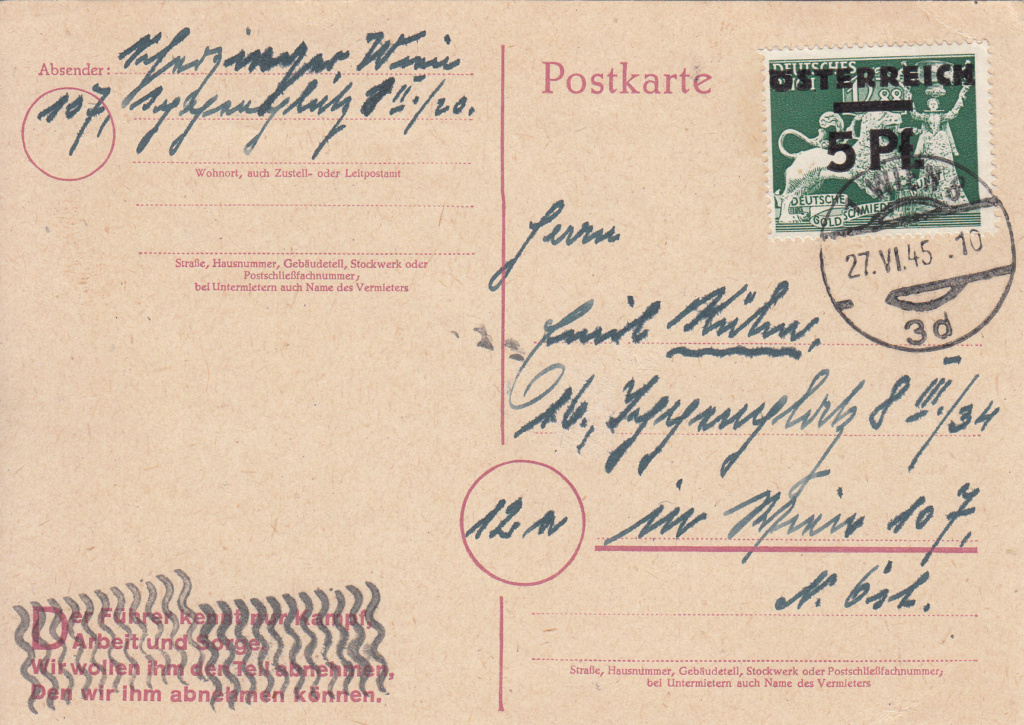 Absender: Scherzinger, Wien
107, Ippenplatz 8 II./20.
Wohnort, auch Zustell- oder Leitpostamt
Straße, Hausnummer, Gebäudeteil, Stockwerk oder
Postschließfachnummer;
bei Untermietern auch Name des Vermieters
Postkarte
DEUTSCHES
ÖSTERREICH
5 Pf.
DEUTSCHE
GOLDSCHMIEDE
WIEN
27.VI.45.10
3d
Herrn
Emil Kühn,
16., Ippenplatz 8 III./34
12a
in Wien 107,
N. Öst.
Straße, Hausnummer, Gebäudeteil, Stockwerk oder Postschließfachnummer;
bei Untermietern auch Name des Vermieters
Der Führer kennt nur Kampf,
Arbeit und Sorge.
Wir wollen ihm den Teil abnehmen,
Den wir ihm abnehmen können.